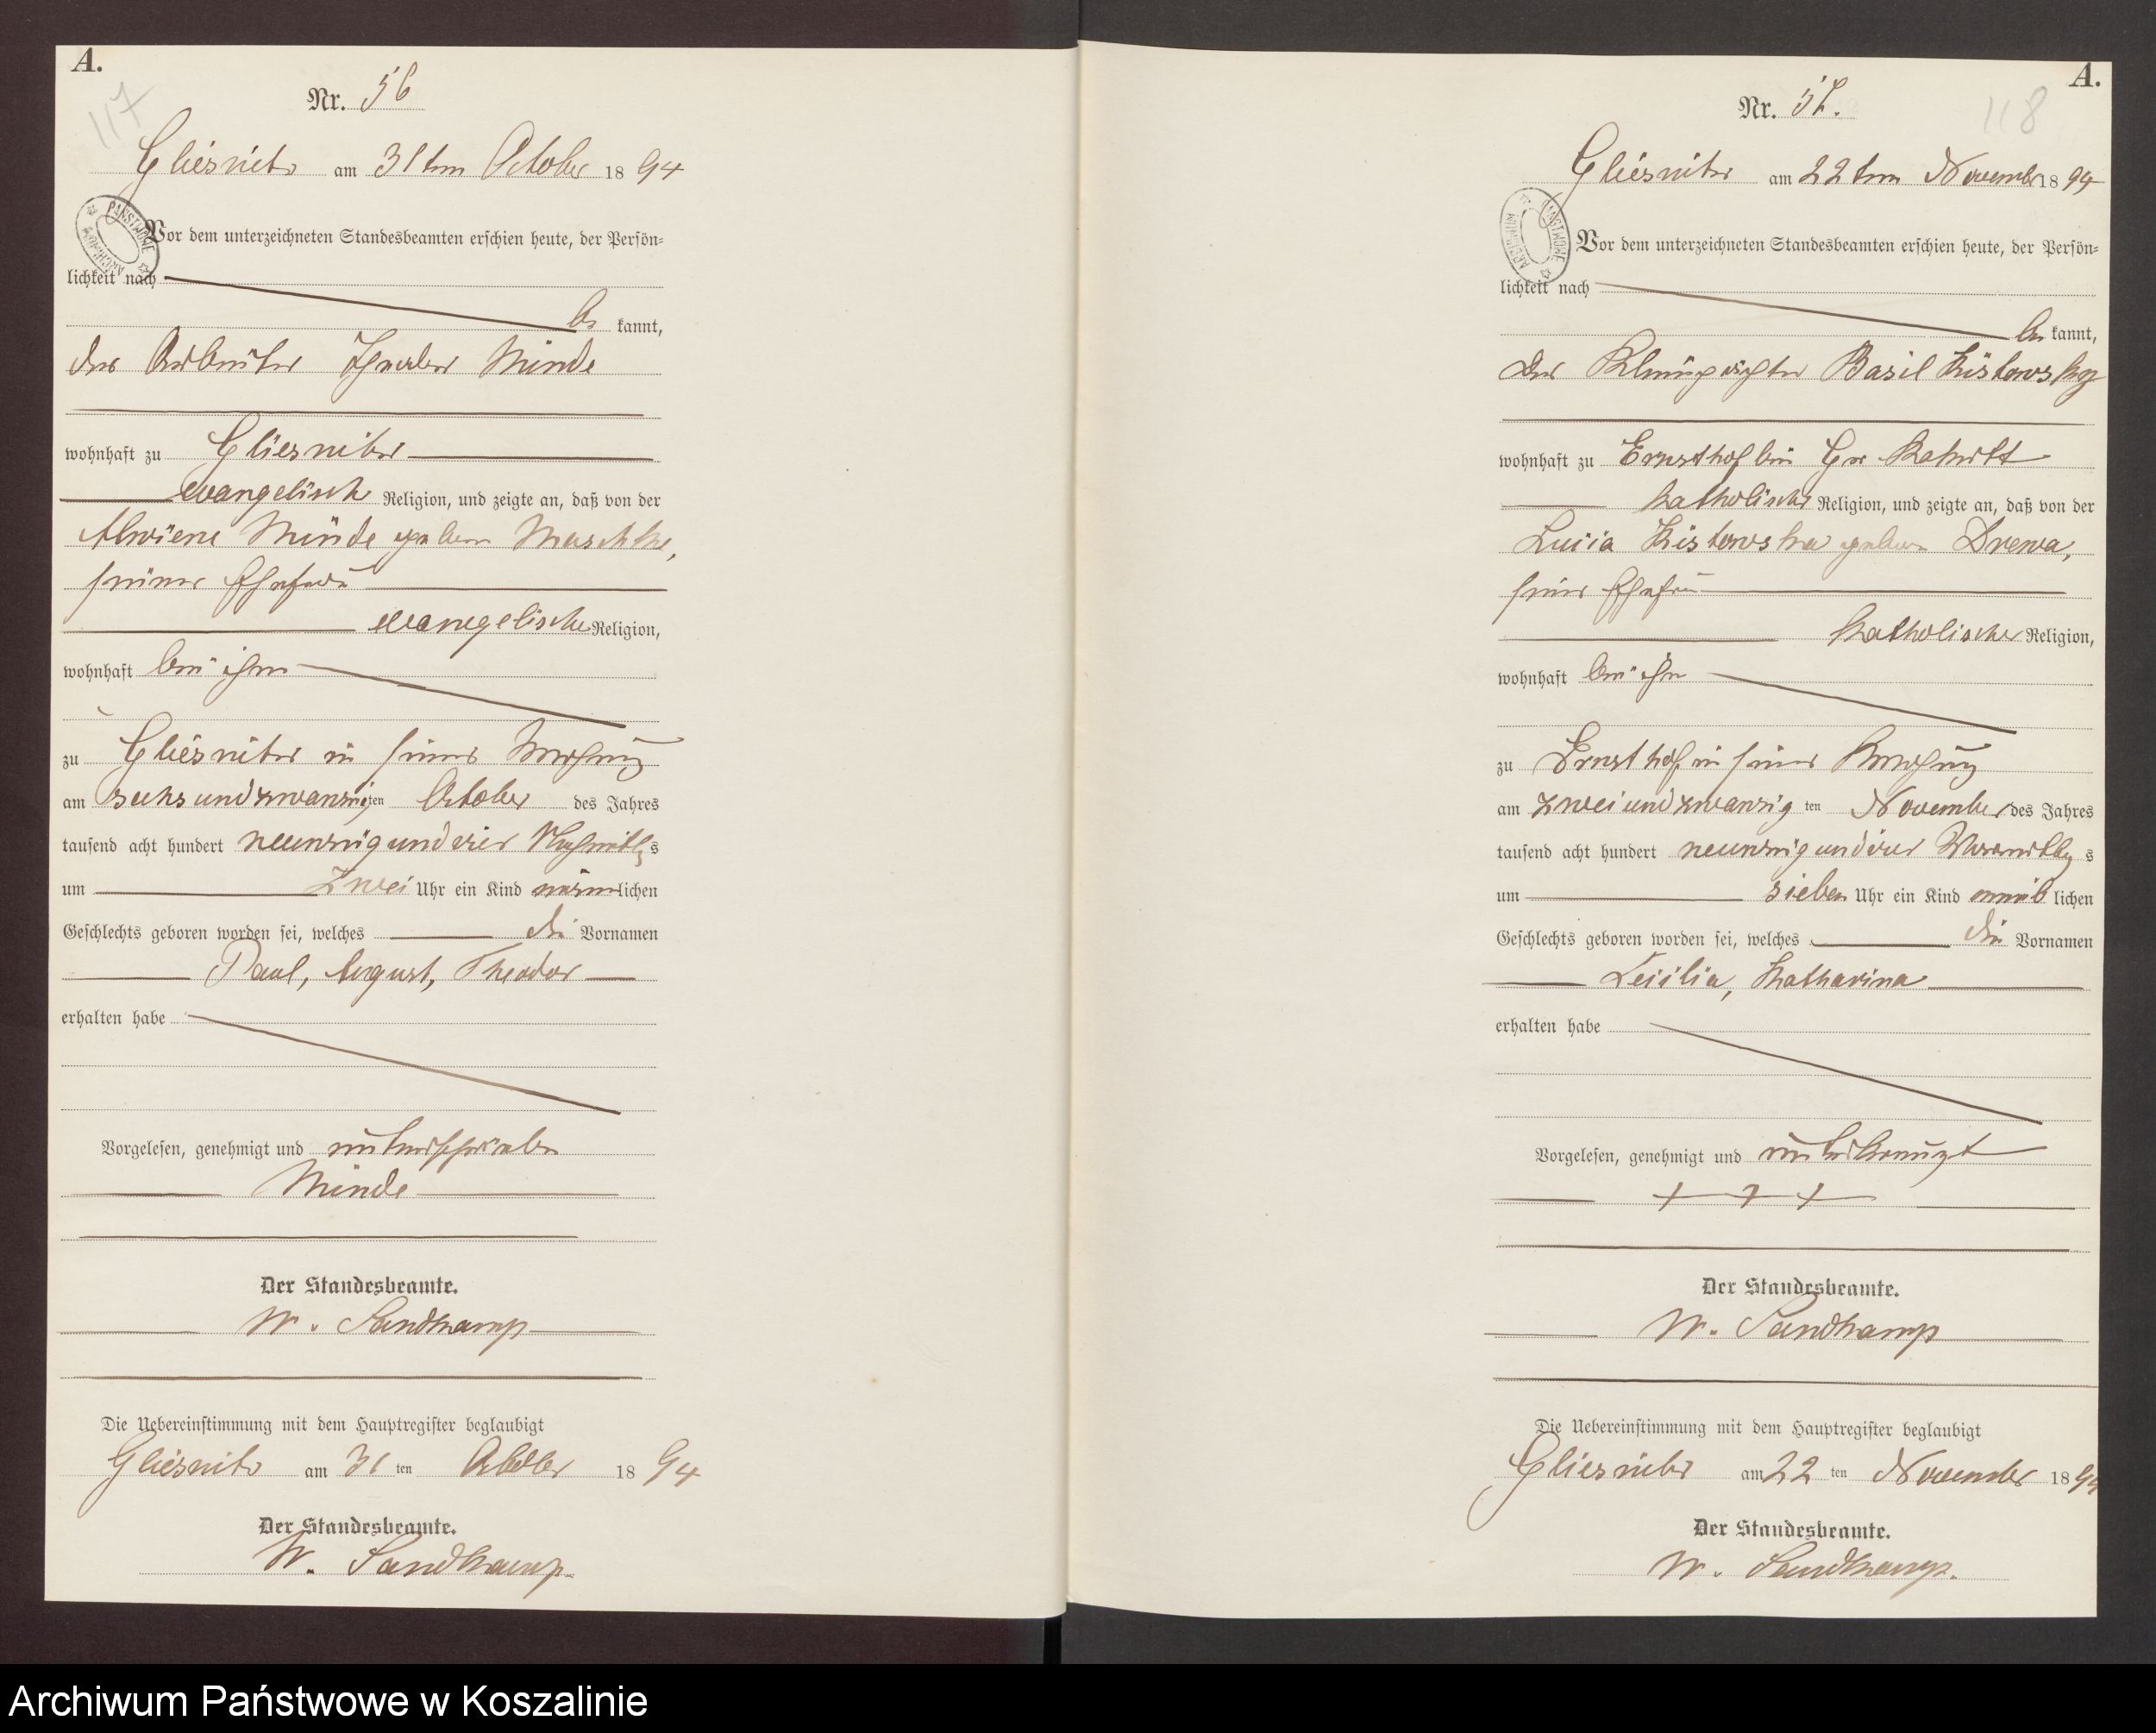 A.
117
Nr. 56
Gliesnitz am 31ten October 1894
Vor dem unterzeichneten Standesbeamten erschien heute, der Persön-
lichkeit nach
be kannt,
der Arbeiter Theodor Minde
wohnhaft zu Gliesnitz
evangelisch Religion, und zeigte an, daß von der
Alwiene Minde geboren Maschke,
seiner Ehefrau
evangelische Religion,
wohnhaft bei ihm
zu Gliesnitz in seiner Wohnung
am sechsundzwanzigten October des Jahres
tausend acht hundert neunzig und vier Nachmittags
um zwei Uhr ein Kind männlichen
Geschlechts geboren worden sei, welches die Vornamen
Paul, August, Theodor
erhalten habe
Vorgelesen, genehmigt und unterschrieben
Minde
Der Standesbeamte.
W. Sandkamp
Die Uebereinstimmung mit dem Hauptregister beglaubigt
Gliesnitz am 31 ten October 1894
Der Standesbeamte.
W. Sandkamp.
A.
118
Nr. 57.
Gliesnitz am 22ten November 1894
Vor dem unterzeichneten Standesbeamten erschien heute, der Persön-
lichkeit nach
be kannt,
Der Basil Kistowsky
wohnhaft zu Ernsthof bei Gr
katholischer Religion, und zeigte an, daß von der
Lucia Kistowska geboren Drewa,
seiner Ehefrau
katholischer Religion,
wohnhaft bei ihm
zu Ernsthof in seiner Wohnung
am zweiundzwanzig ten November des Jahres
tausend acht hundert neunzig und vier Vormittags
um sieben Uhr ein Kind weib lichen
Geschlechts geboren worden sei, welches die Vornamen
Cecilia, Katharina
erhalten habe
Vorgelesen, genehmigt und unterkreuzt
+ + +
Der Standesbeamte.
W. Sandkamp
Die Uebereinstimmung mit dem Hauptregister beglaubigt
Gliesnitz am 22 ten November 1894
Der Standesbeamte.
W. Sandkamp.
Archiwum Państwowe w Koszalinie